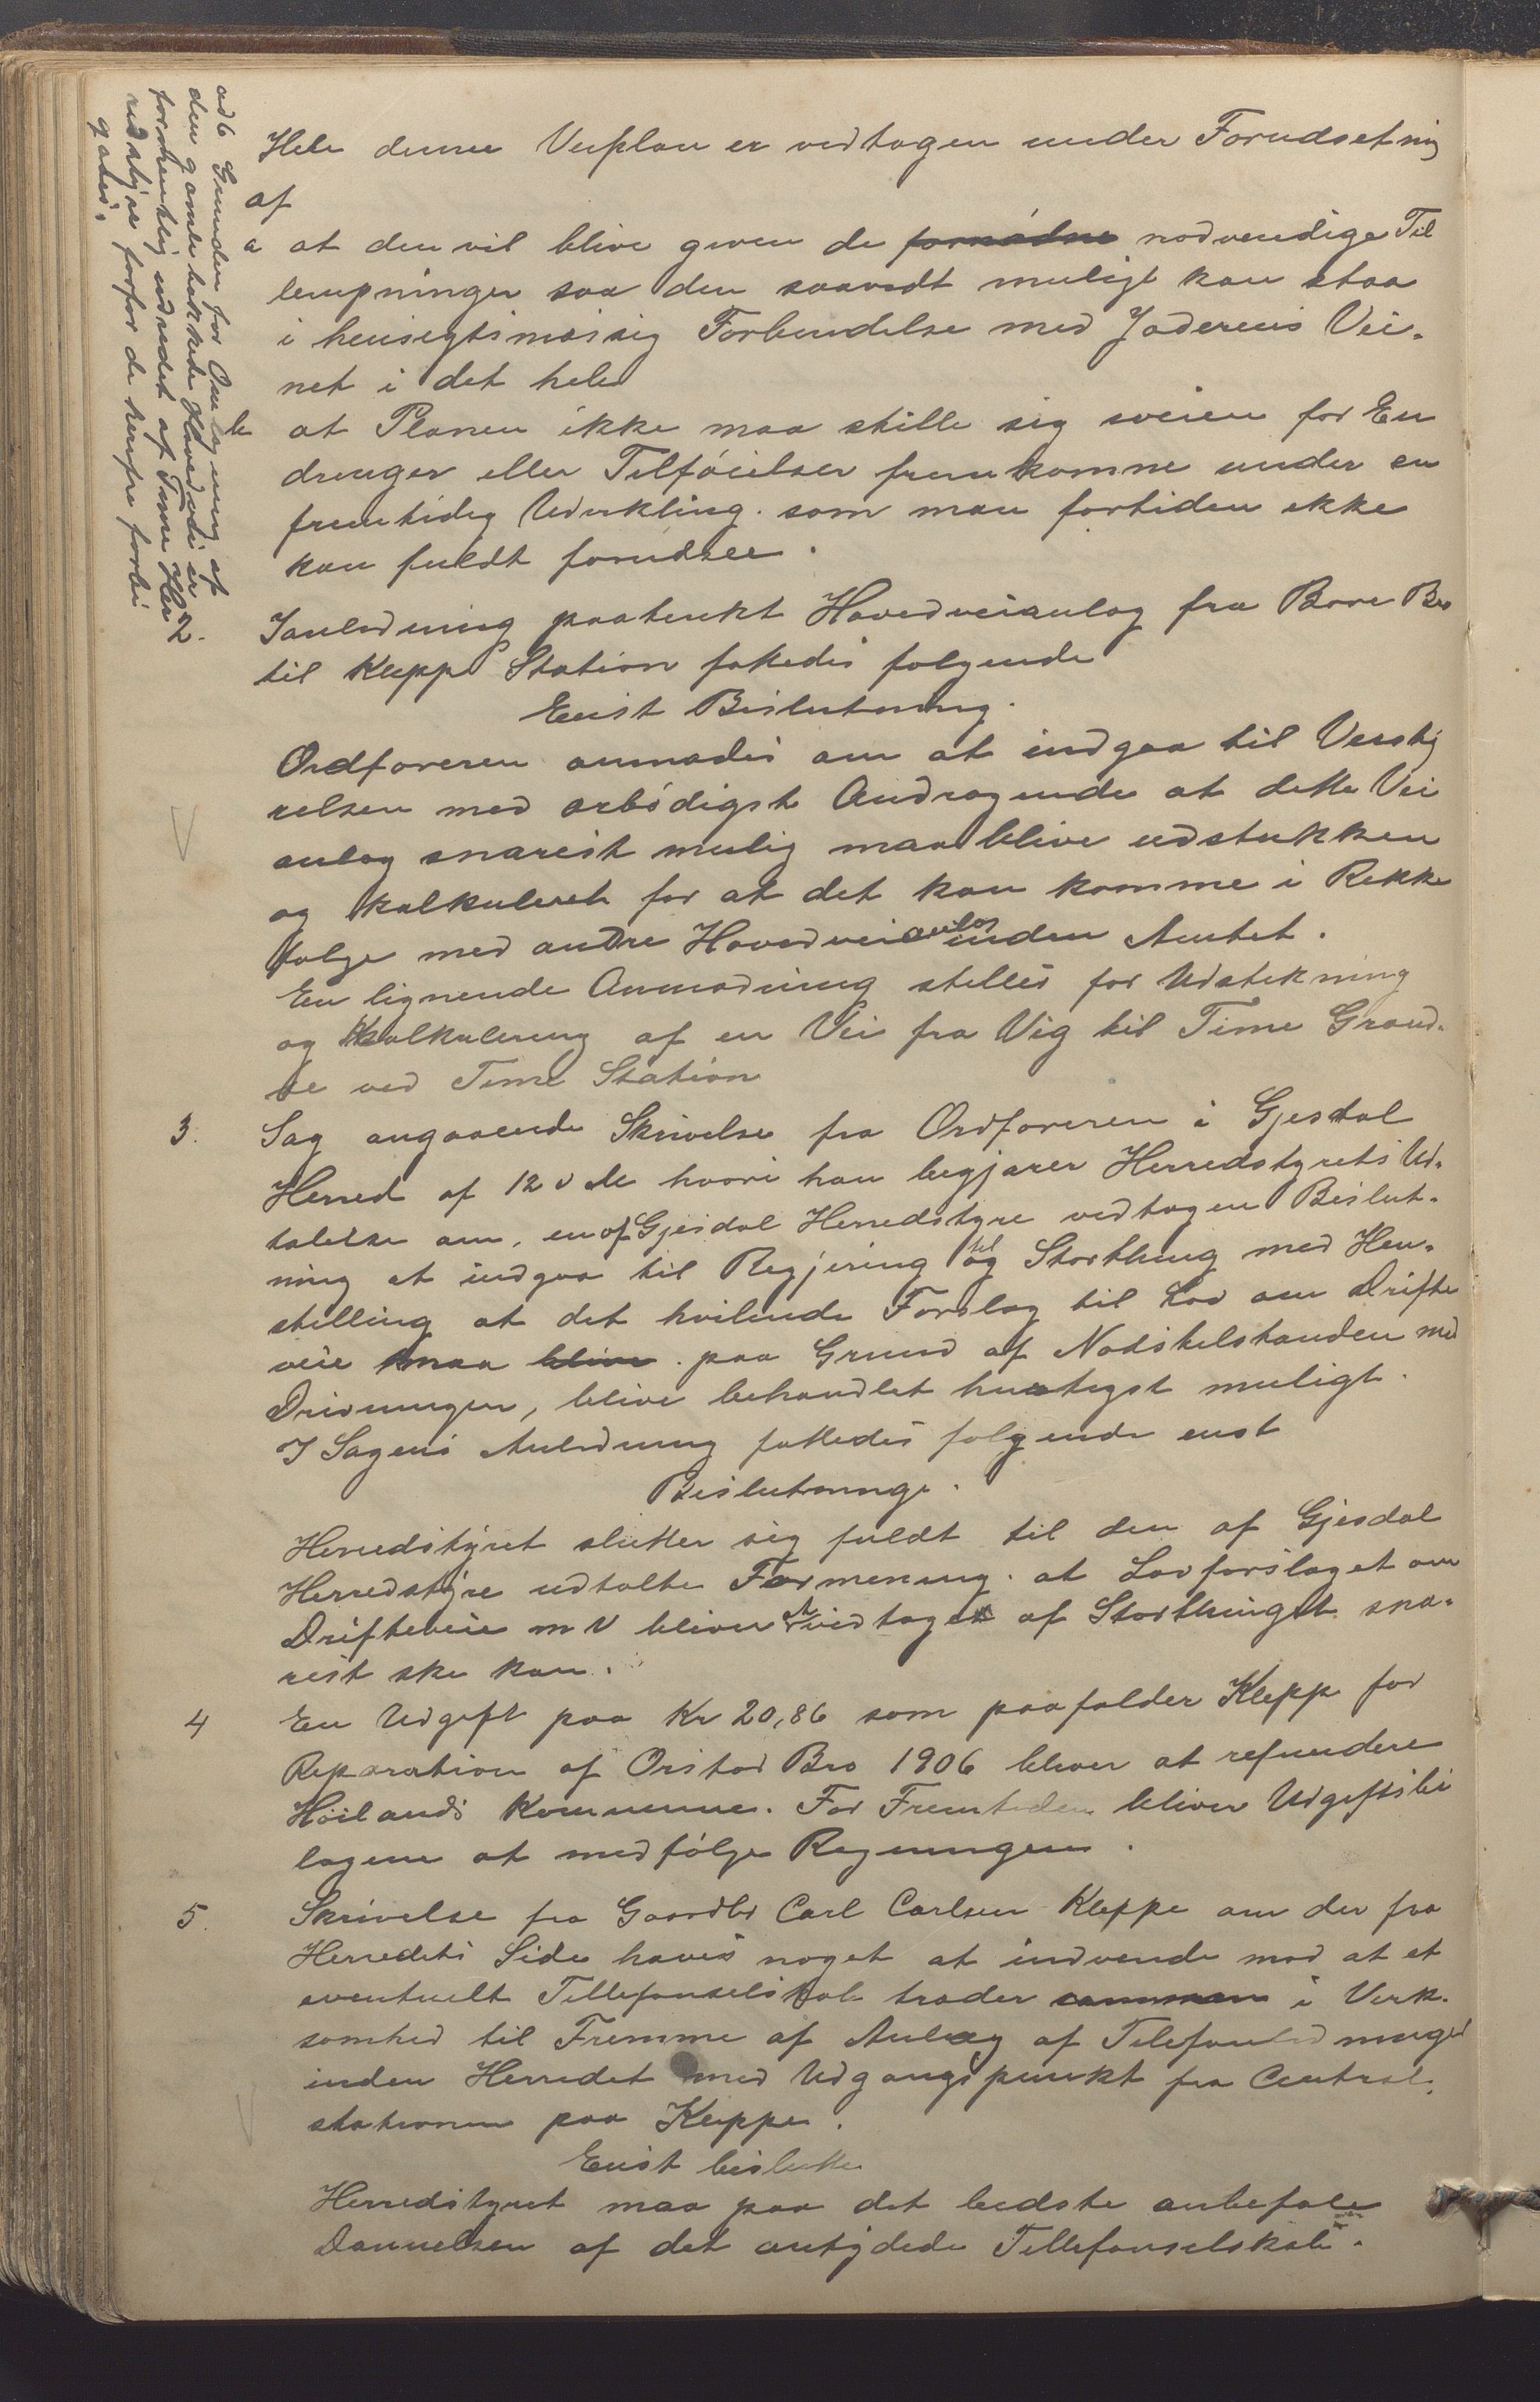 Hele denne Veiplan er vedtagen under Forudsetning
af
a at den vil blive given de fornødne nødvendige Til
lempninger saa den saavidt muligt kan staa
i hensigtsmæssig Forbindelse med Jæderens Vei-
net i det hele
b at Planen ikke maa stille sig iveien for En
dringer eller Tilføielser fremkomne under en
fremtidig Udvikling som man fortiden ikke
kan fuldt forudsee.
Ianledning paatenkt Hovedveianlæg fra Bore Bro
til Klepp Station fattedes følgende
Enst Beslutning.
Ordføreren anmodes om at indgaa til Veisty
relsen med ærbødigst Andragende at dette Vei
anlæg snarest mulig maa blive udstukken
og kalkuleret for at det kan komme i Rekke
følge med andre Hovedveianlæg inden Amtet.
En lignende Anmodning stilles for Udstikning
og kalkulering af en Vei fra Vig til Time Grænd-
se ved Time Station
3. Sag angaaende Skrivelse fra Ordføreren i Gjesdal
Herred af 12 v de hvori han begjærer Herredstyrets Ud-
talelse om, en af Gjesdal Herredstyre vedtagen Beslut-
ning at indgaa til Regjering og til Storthing med Hen-
stilling at det hvilende Forslag til Lov om Drifte
veie maa blive paa Grund af Nødstilstanden med
Drivningen, blive behandlet hurtigst muligt.
I Sagens Anledning fattedes følgende enst
Beslutninge.
Herredstyret slutter sig fuldt til den af Gjesdal
Herredstyre udtalte Formening at Lovforslaget om
Drifteveie m V bliver at vedtaget af Storthinget sna-
rest ske kan.
4 En Udgift paa Kr 20,86 som paafalder Klepp for
Reparation af Orstad Bro 1906 bliver at refundere
Høilands Kommune. For Fremtiden bliver Udgiftsbi
lagene at medfølge Regningen.
5. Skrivelse fra Gaardbr Carl Carlsen Kleppe om der fra
Herredets Side haves noget at indvende mod at et
eventuelt Tellefonselskab træder sammen i Virk-
somhed til Fremme af Anlæg af Telefonledninger
inden Herredet med Udgangspunkt fra Central-
stationen paa Kleppe.
Enst beslutte
Herredstyret maa paa det bedste anbefale
Dannelsen af det antydede Tellefonselskab.
ad 6 Grunden for Omlægning af
den gamle Hovedvei er
forhenblig udredet af Time Her
redstyre forfor de herfra forbi
gaaes.